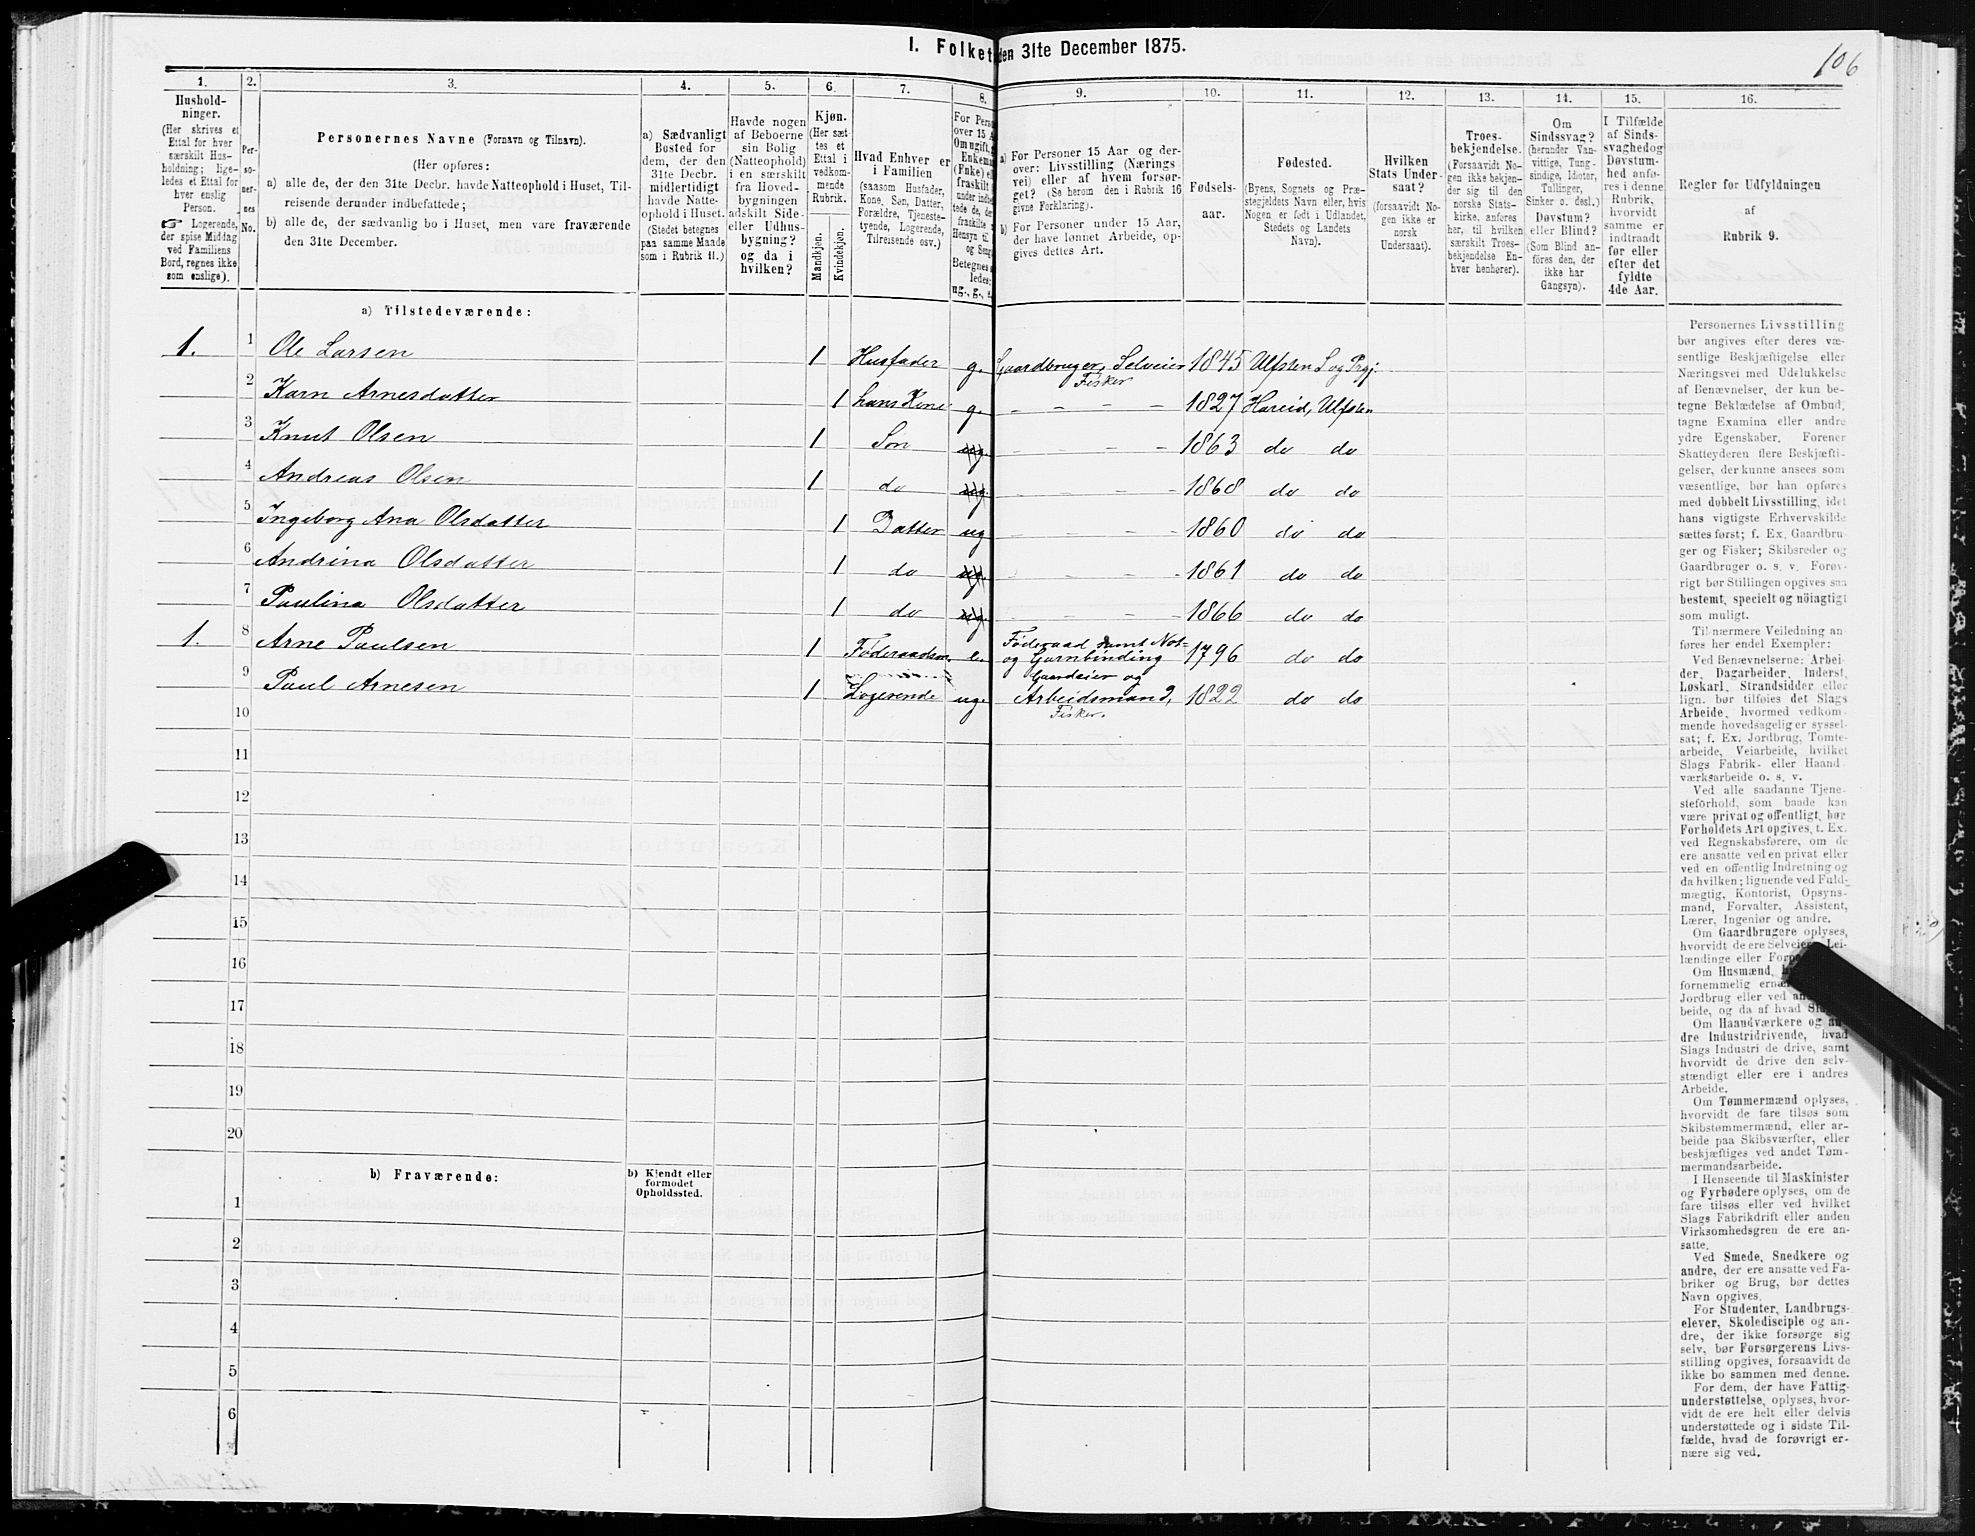 I. Folket
den 31te December 1875.
106
1.
2.
3.
4.
5.
6.
7.
8.
9.
10.
11.
12.
13.
14.
15.
16.
Hushold-
ninger.
(Her skrives et
Ettal for hver
særskilt Hus-
holdning; lige-
ledes et Ettal for
hver enslig
Person.
☞ Logerende,
der spise Middag
ved Familiens
Bord, regnes ikke
som enslige).
Per-
so-
ner-
nes
No.
Personernes Navne (Fornavn og Tilnavn).
(Her opføres:
a) alle de, der den 31te Decbr. havde Natteophold i Huset, Til-
reisende derunder indbefattede;
b) alle de, der sædvanlig bo i Huset, men vare fraværende
den 31te December.
a) Sædvanligt
Bosted for
dem, der den
31te Decbr.
midlertidigt
havde Natte-
ophold i Huset.
(Stedet betegnes
paa samme Maade
som i Rubrik 11.)
Havde nogen
af Beboerne
sin Bolig
(Natteophold)
i en særskilt
fra Hoved-
bygningen
adskilt Side-
eller Udhus-
bygning?
og da i
hvilken?
Kjøn.
(Her sæt-
tes et
Ettal i
vedkom-
mende
Rubrik.
Mandkjøn.
Kvindekjøn.
Hvad Enhver er
i Familien
(saasom Husfader,
Kone, Søn, Datter,
Forældre, Tjeneste-
tyende, Logerende,
Tilreisende osv.)
For Perso
over 15 A
Om ugift, g
Enkem
(Enke) e
fraskilt
og
Betegnes
ledes:
ug., g., e.
a) For Personer 15 Aar og der-
over: Livsstilling (Nærings
vei) eller af hvem forsør-
get? (Se herom den i Rubrik 16
givne Forklaring).
b) For Personer under 15 Aar,
der have lønnet Arbeide, op-
gives dettes Art.
Fødsels-
aar.
Fødested.
(Byens, Sognets og Præ-
stegjeldets Navn eller, hvis
Nogen er født i Udlandet,
Stedets og Landets
Navn).
Hvilken
Stats Under-
saat?
(forsaavidt No-
gen ikke er
norsk
Undersaat).
Troes-
bekjendelse.
(Forsaavidt No-
gen ikke bekjen-
der sig til den
norske Stats-
kirke, anføres
her, til hvilken
særskilt Troes-
bekjendelse En-
hver henhører).
Om
Sindssvag?
(herunder Van-
vittige, Tung-
sindige, Idioter,
Tullinger,
Sinker o. desl.)
Døvstum?
eller Blind?
(Som Blind an-
føres den, der
ikke har
Gangsyn).
I Tilfælde
af Sinds-
svaghedog
Døvstum-
hed anfø-
res i denne
Rubrik,
hvorvidt
samme er
indtraadt
før eller
efter det
fyldte
4de Aar.
Regler for Udfyldningen
af
Rubrik 9.
a) Tilstedeværende:
1. 1 Ole Larsen 1 Husfader g. Gaardbruger, Selveier 1845 Ulfsten S og Prgj.
Fisker
2 Karn Arnesdatter 1 hans Kone g. - - - - 1827 Hareid, Ulfsten
3 Knut Olsen 1 Søn ug. - - - - 1863 do do
4 Andreas Olsen 1 do ug. - - - - 1868 do do
5 Ingeborg Ana Olsdatter 1 Datter ug - - - - 1860 do do
6 Andrina Olsdatter 1 do ug. - - 1861 do do
7 Paulina Olsdatter 1 do ug. - - - - 1866 do do
1. 8 Arne Paulsen 1 Føderaadsm. e. Føderaad samt Not-
og Garnbinding 1796 do do
9 Paul Arnesen 1 Logerende ug. Gaardeier og
Arbeidsmand, 1822 do do
Fisker.
10
11
12
13
14
15
16
17
18
19
20
b) Fraværende:
b) Kjendt eller
formodet
Opholdssted.
1
2
3
4
5
6
Personernes Livsstilling
bør angives efter deres væ-
sentlige Beskjæftigelse eller
Næringsvei med Udelukkelse
af Benævnelser, der kun be-
tegne Beklædelse af Ombud,
tagne Examina eller andre
ydre Egenskaber. Forener
Skatteyderen flere Beskjæfti-
gelser, der kunne ansees som
væsentlige, bør han opføres
med dobbelt Livsstilling, idet
hans vigtigste Erhvervskilde
sættes først; f. Ex. Gaardbru-
ger og Fisker; Skibsreder og
Gaardbruger o. s. v. Forøv-
rigt bør Stillingen opgives saa
bestemt, specielt og nöiagtigt
som muligt.
Til nærmere Veiledning an-
føres her endel Exempler:
Ved Benævnelserne: Arbei-
der, Dagarbeider, Inderst,
Løskarl, Strandsidder eller
lign. bør tilføies det Slags
Arbeide, hvormed vedkom-
mende hovedsagelig er syssel-
sat; f. Ex. Jordbrug, Tomte-
arbeide, Veiarbeide, hvilket
Slags Fabrik- eller Haand-
værksarbeide o. s. v.
Ved alle saadanne Tjene-
steforhold, som baade kan
være privat og offentligt, bør
Forholdets Art opgives, t. Ex.
ved Regnskabsførere, om de
ere ansatte ved en privat eller
ved en offentlig Indretning og
da hvilken; lignende ved Fuld-
mægtig, Kontorist, Opsyns-
mand, Forvalter, Assistent,
Lærer, Ingeniør og andre.
Om Gaardbrugere oplyses,
hvorvidt de ere Selveiere, Lei-
lændinge eller Forp
Om Husmænd,
fornemmelig ernæ
Jordbrug eller ved an
beide, og da af hvad Slag
Om Haandværkere og an-
dre Industridrivende, hvad
Slags Industri de drive, samt
hvorvidt de drive den selv-
stændigt eller ere i andres
Arbeide.
Om Tømmermænd oplyses,
hvorvidt de fare tilsøs som
Skibstømmermænd, eller ar-
beide paa Skibsværfter, eller
beskjæftiges ved andet Tøm-
mermandsarbeide.
I Henseende til Maskinister
og Fyrbødere oplyses, om de
fare tilsøs eller ved hvilket
Slags Fabrikdrift eller anden
Virksomhedsgren de ere an-
satte.
Ved Smede, Snedkere og
andre, der ere ansatte ved Fa-
briker og Brug, bør dettes
Navn opgives.
For Studenter, Landbrugs-
elever, Skoledisciple og an-
dre, der ikke forsørge sig
selv, bør Forsørgerens Livs-
stilling opgives, forsaavidt de
ikke bo sammen med denne.
For dem, der have Fattig-
understøttelse, oplyses, hvor-
vidt de ere helt eller delvis
understøttede og i sidste Til-
fælde, hvad de forøvrigt er-
nære sig ved.